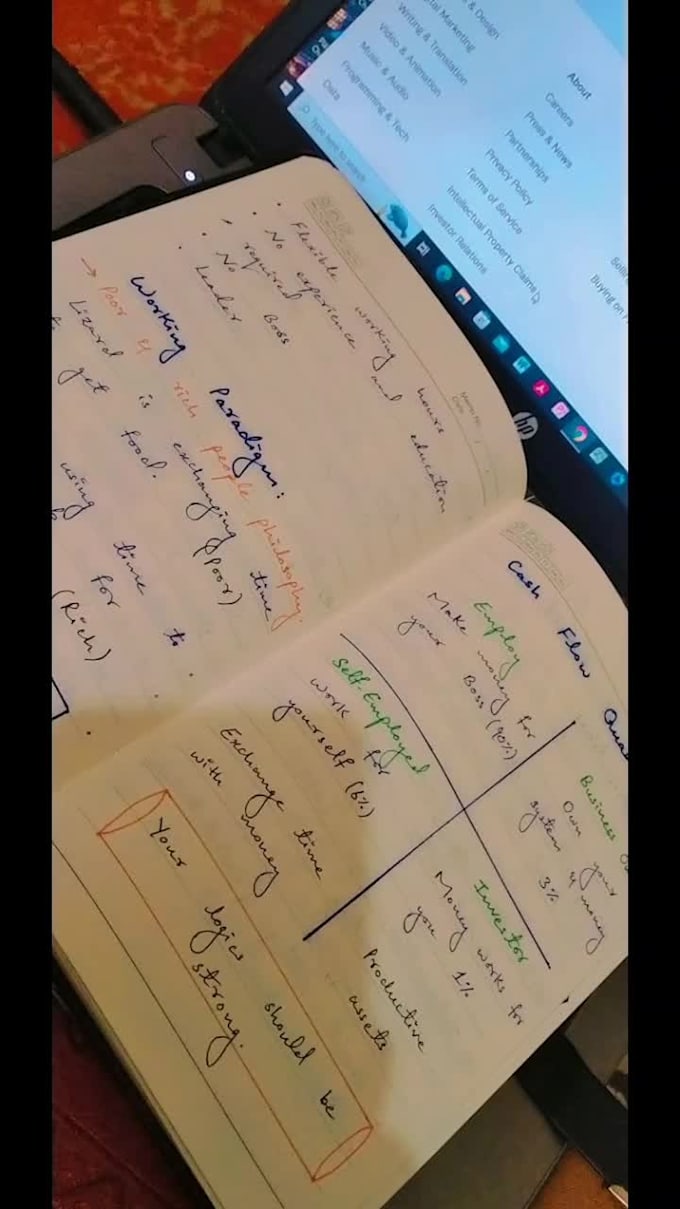 & Design
Digital Marketing
Writing & Translation
Video & Animation
Music & Audio
Programming & Tech
Data
About
Careers
Press & News
Partnerships
Privacy Policy
Terms of Service
Intellectual Property Claims
Investor Relations
Buying on
Type here to search
hp
Memo No.
Date
• Flexible working hours
• No experience and education
required
• No Boss
• Leader
Working Paradigm:
→ Poor & rich people philosophy.
Lizard is exchanging time
to get food. (Poor)
using time to
for
(Rich)
Cash Flow
Employ
Make money for
your Boss (90%)
Business
Own your
system & money
3%
Self-Employed
work for
yourself (6%)
Investor
Money works for
you 1%
Exchange time
with money
Productive
assets
Your logics should be
strong.